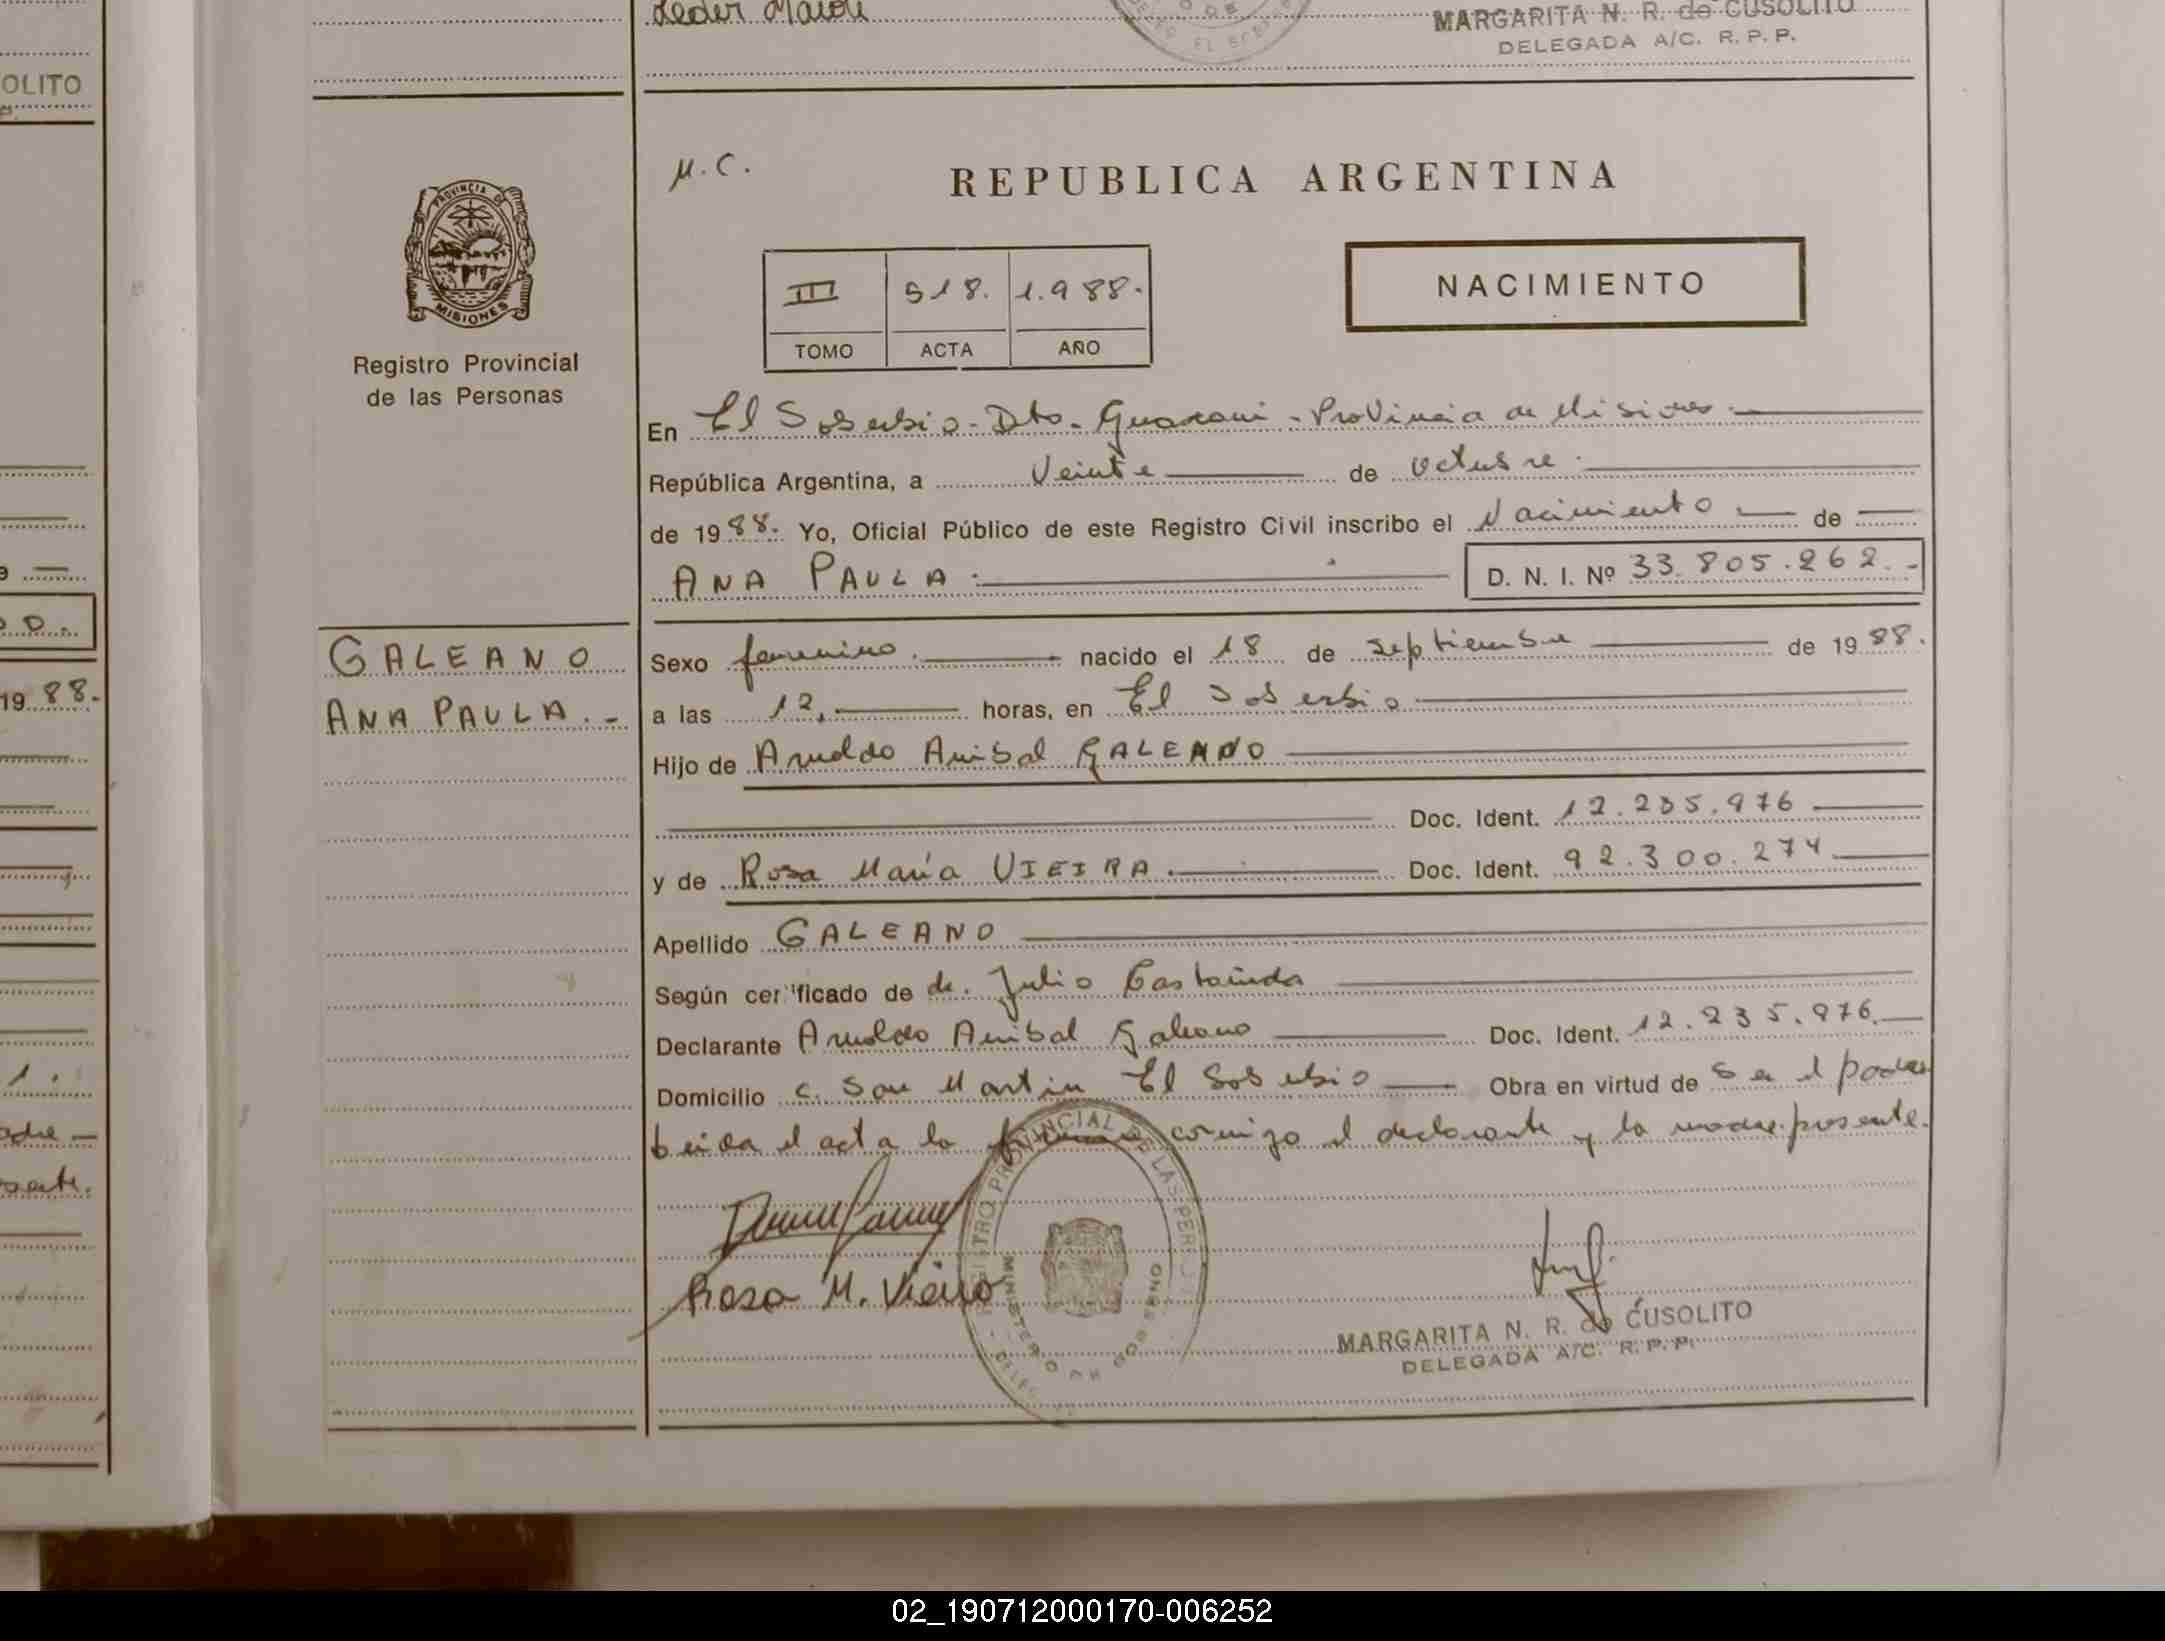 Leder Maioli
MARGARITA N. R. de CUSOLITO
DELEGADA A/C. R. P. P.
OLITO
M.C.
REPUBLICA ARGENTINA
PROVINCIA DE MISIONES
Registro Provincial
de las Personas
III 518. 1.988.
TOMO ACTA AÑO
NACIMIENTO
En El Soberbio - Dto. Guarani - Provincia de Misiones.
República Argentina, a Veinte de octubre.
de 1988. Yo, Oficial Público de este Registro Civil inscribo el Nacimiento de
ANA PAULA. D. N. I. Nº 33.805.262.-
GALEANO
ANA PAULA.-
Sexo femenino. nacido el 18 de septiembre de 1988.
a las 12, horas, en El Soberbio
Hijo de Arnoldo Anibal GALEANO
Doc. Ident. 12.235.976
y de Rosa María VIEIRA. Doc. Ident. 92.300.274
Apellido GALEANO
Según certificado de dr. Julio Castañeda
Declarante Arnoldo Anibal Galeano Doc. Ident. 12.235.976.
Domicilio c. San Martin El Soberbio Obra en virtud de ser el padre
Leida el acta la firman conmigo el declarante y la madre presente.
Rosa M. Vieira
REGISTRO PROVINCIAL DE LAS PERSONAS
MINISTERIO DE GOBIERNO
MARGARITA N. R. de CUSOLITO
DELEGADA A/C. R. P. P.
19 88.
02_190712000170-006252